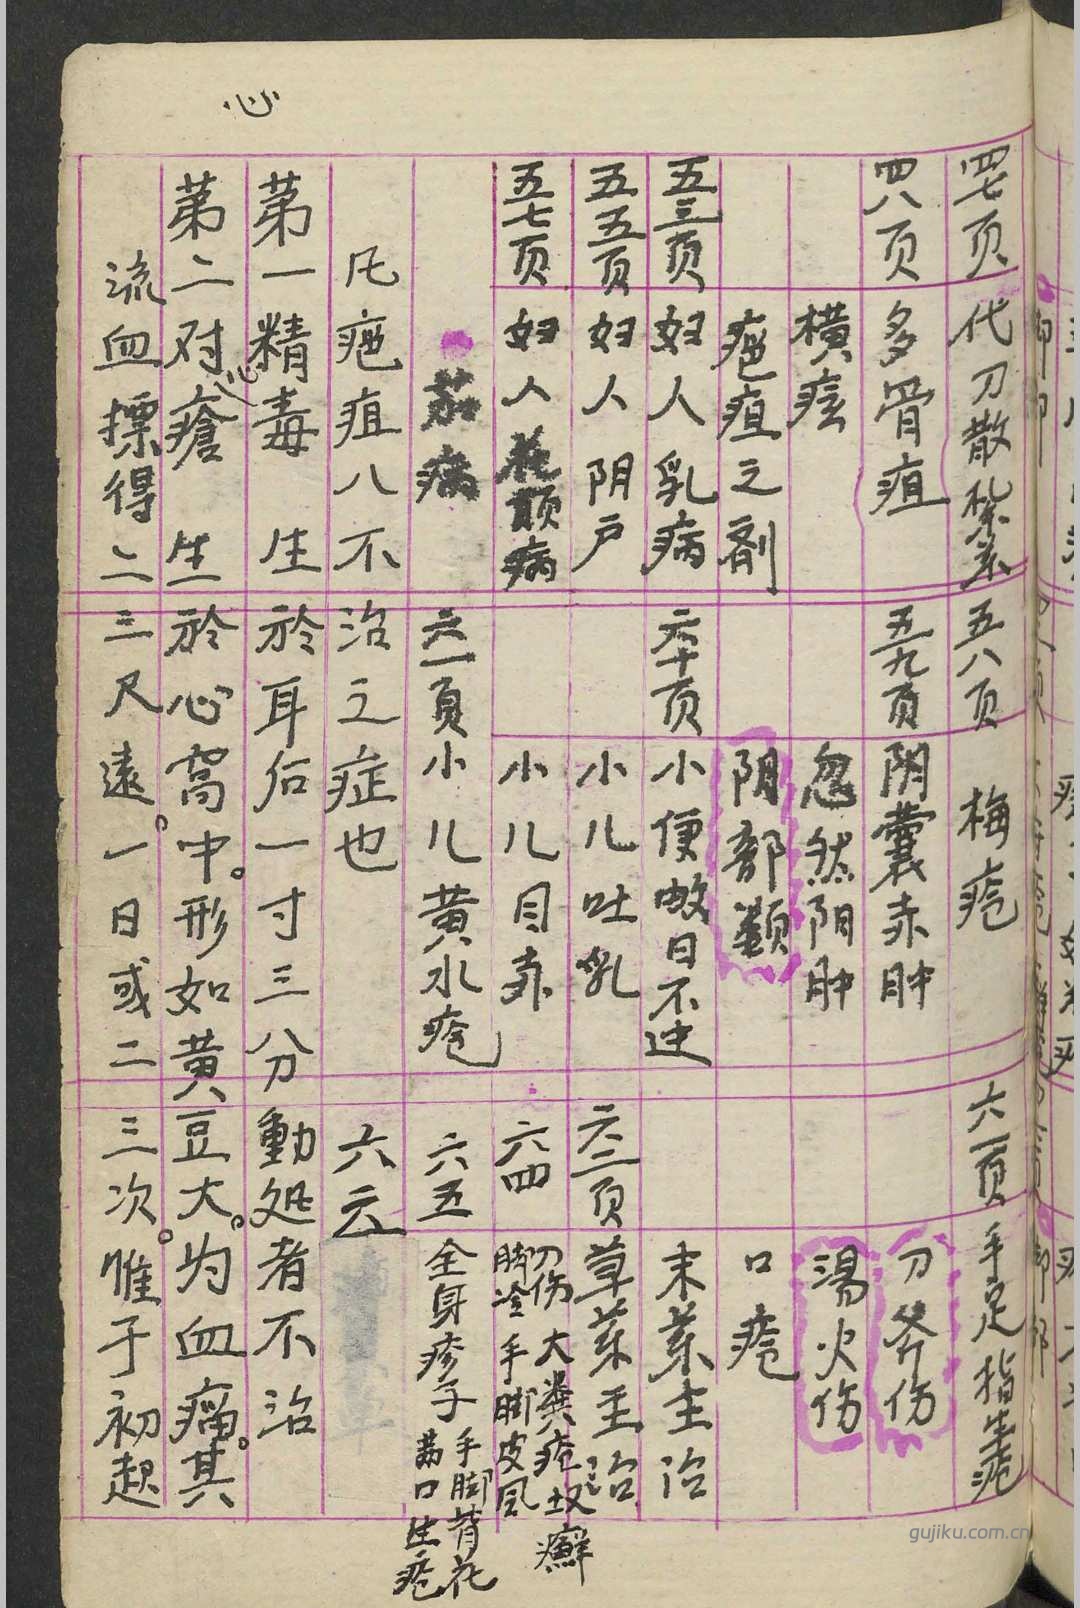 心
四七页 代刀散
四八页 多骨疽
横痃
疤疽之剂
五三页 妇人乳病
五五页 妇人阴户
五七页 妇人 病
五八页 梅疮
五九页 阴囊赤肿
忽然阴肿
阴部
六十页 小便 日不
小儿吐乳
小儿目赤
六一頁 小儿黄水疮
六二页 手足指生疮
刀斧伤
湯火伤
口疮
末薬主治
六三页 草薬主治
六四 刀伤 大粪疮 癬
脚冷 手脚皮风
六五 全身疹子 手脚背花
满口生疮
病
凡疤疽八不治之症也 六云
苐一精毒 生於耳后一寸三分動処者不治
苐二对心瘡 生於心窝中。形如黄豆大。为血瘤。其
流血摽得二三尺遠。一日或二三次。惟于初起
gujiku.com.cn